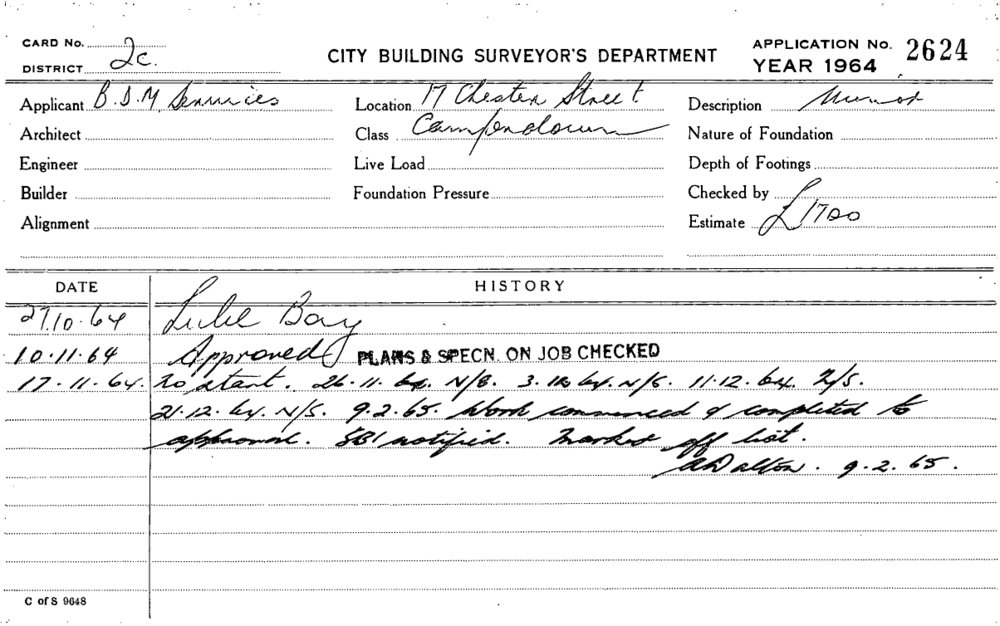 CARD No.
DISTRICT 2c.
CITY BUILDING SURVEYOR'S DEPARTMENT
APPLICATION No. 2624
YEAR 1964
Applicant B.D.M. Services
Location 17 Chester Street
Description
Architect
Class Camperdown
Nature of Foundation
Engineer
Live Load
Depth of Footings
Builder
Foundation Pressure
Checked by
Alignment
Estimate £1700
DATE HISTORY
27.10.64 Bay
10.11.64 Approved PLANS & SPECN. ON JOB CHECKED
17.11.64. No start. 26.11.64. N/S. 3.12.64. N/S. 11.12.64. N/S.
21.12.64. N/S. 9.2.65. Work commenced & completed to
approval. SBI notified. Marked off list.
9.2.65.
C of S 9648